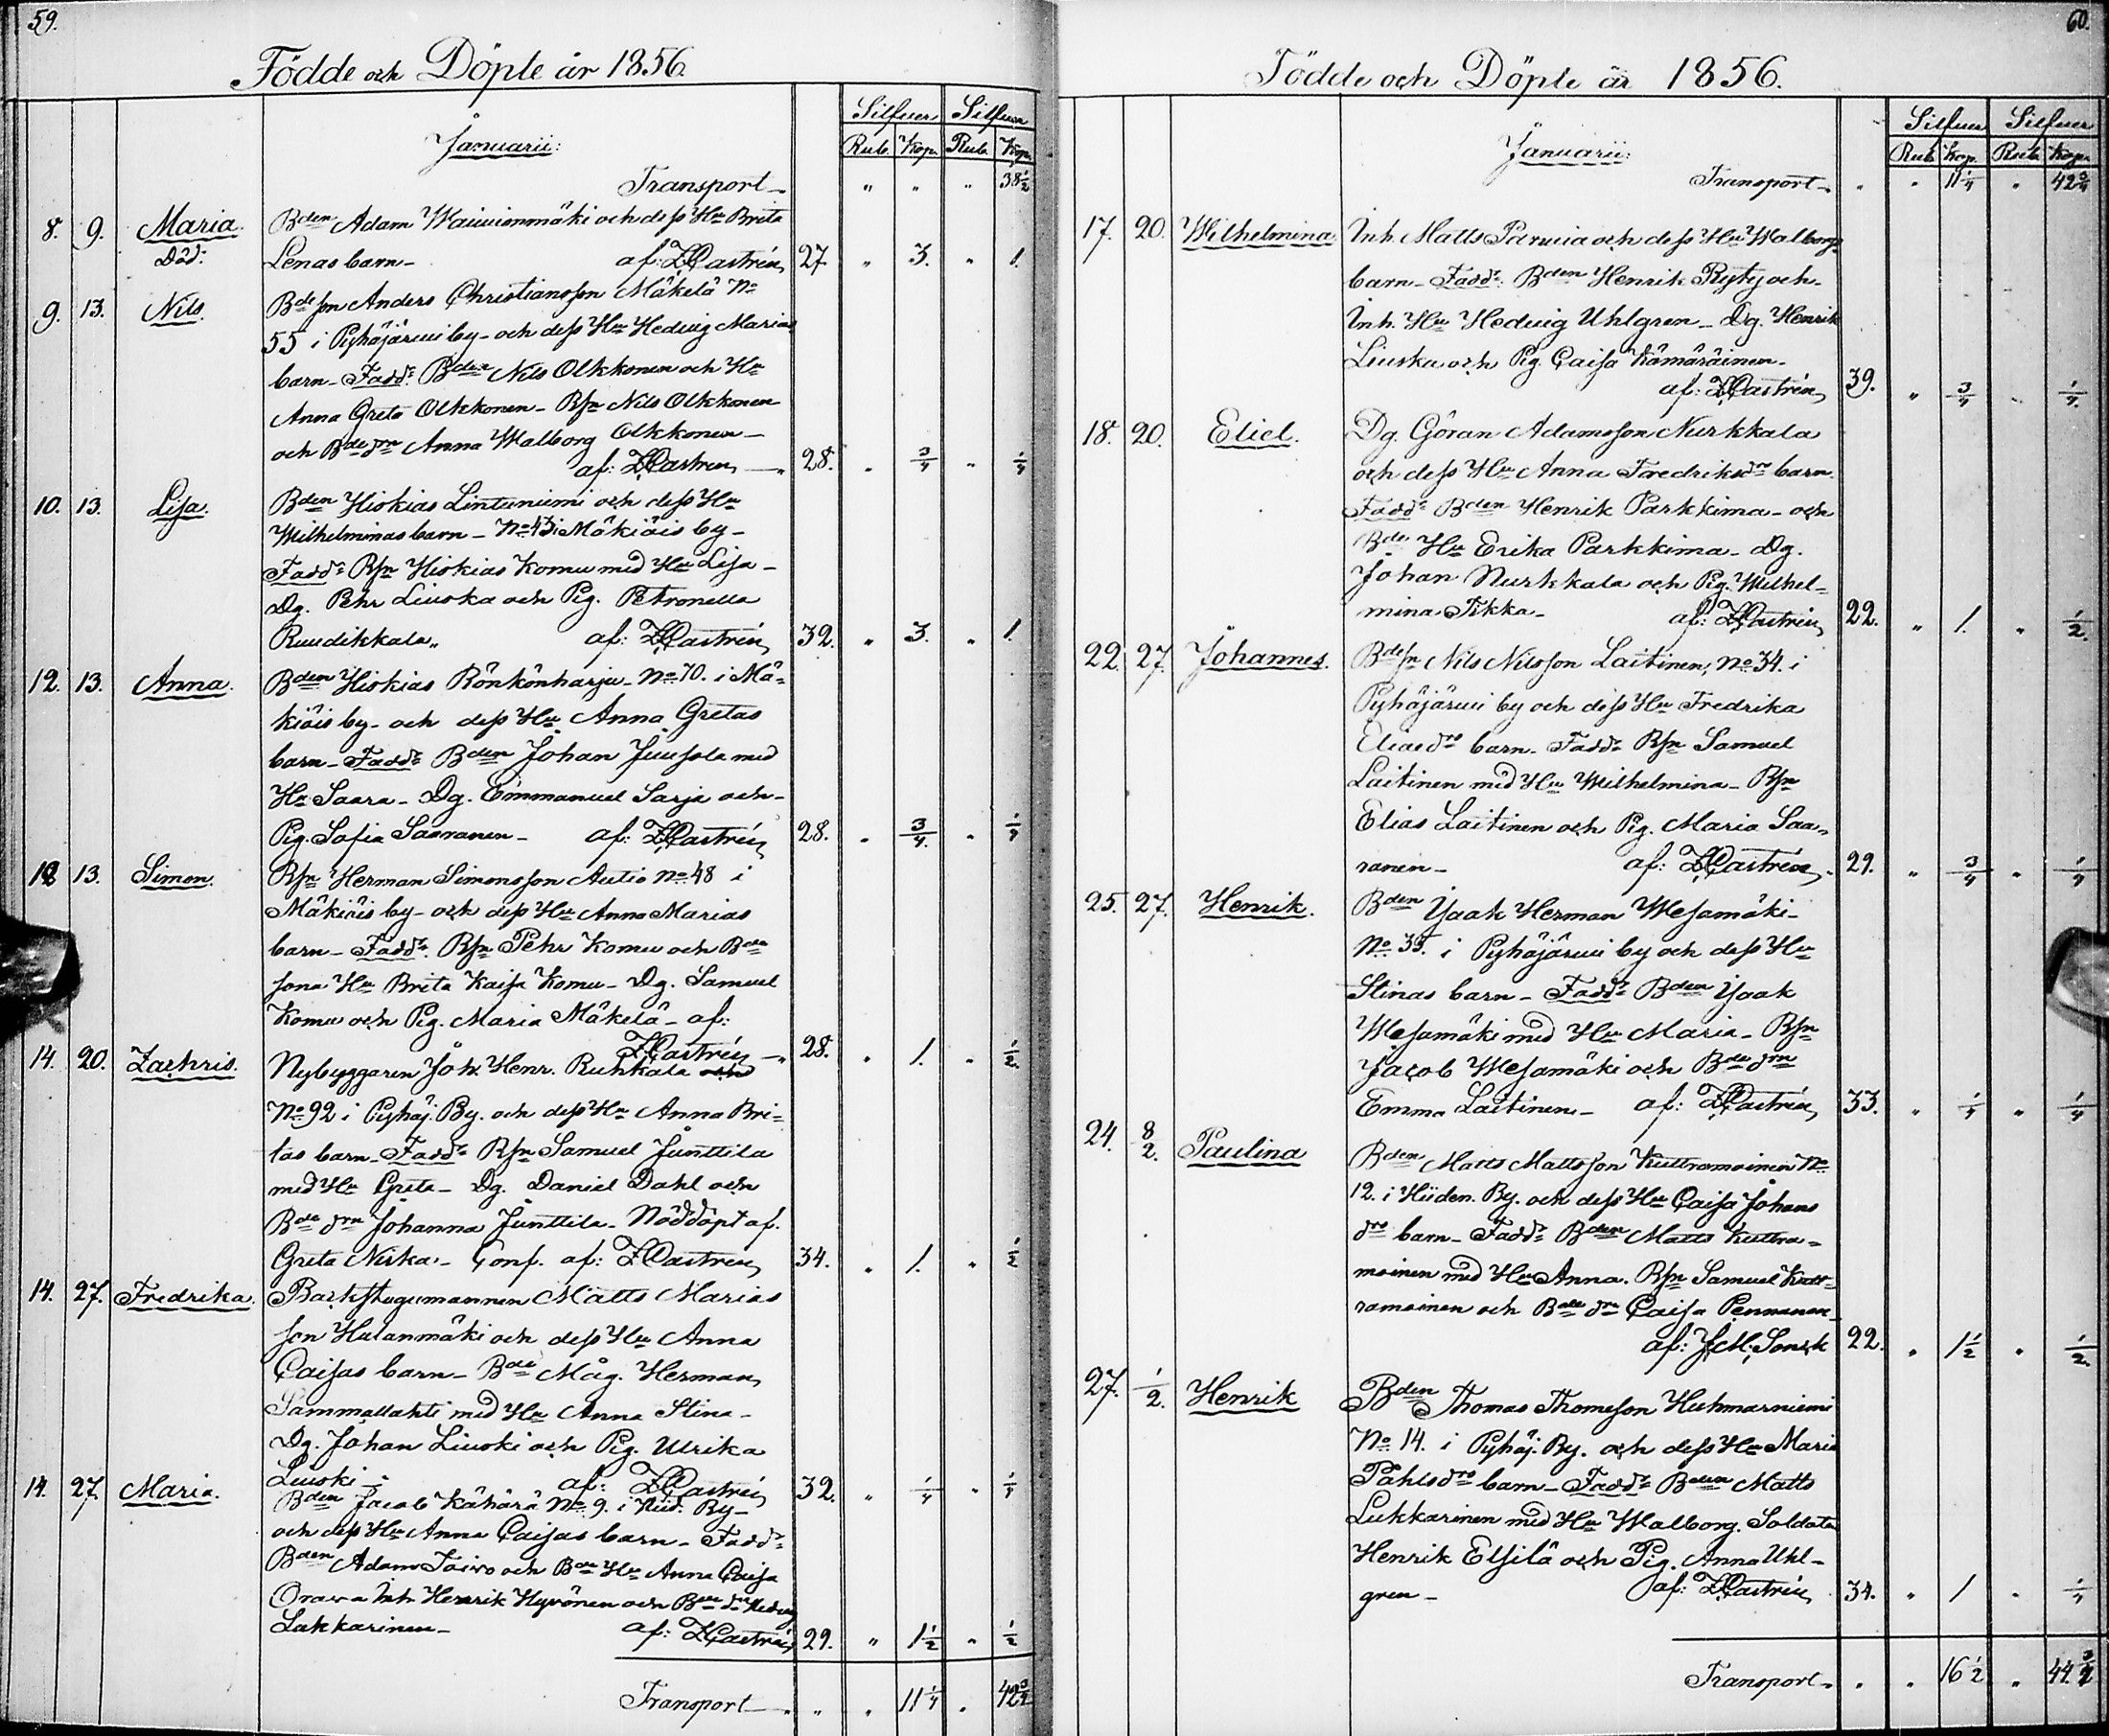 59.
Födde och Döpte år 1856.
Silfver Silfver
Januarii: Rub. Kop. Rub. Kop.
Transport " " " 38 1/2
8. 9. Maria. Bden Adam Wainionmäki och dess Hu Brita
Död: Lenas barn - af: ZCastrén 27 " 3. " 1.
9. 13. Nils. Bdeson Anders Christiansson Mäkelä No
55 i Pyhäjärvi by - och dess Hu Hedvig Marias
barn - Fadd: Bden Nils Olkkonen och Hu
Anna Greta Olkkonen - Bsn Nils Olkkonen
och Bdedrn Anna Walborg Olkkonen -
af: ZCastren 28. " 3/4 " 1/4
10. 13. Lisa. Bden Hiskias Lintuniemi och dess Hu
Wilhelminas barn - No 43 i Mäkiäis by -
Fadd: Bsn Hiskias Komu med Hu Lisa -
Dg. Pehr Liuska och Pig. Petronella
Ruudikkala " af: ZCastrén 32. " 3. " 1.
12. 13. Anna. Bden Hiskias Rönkönharju - No 70. i Mä-
kiäis by - och dess Hu Anna Gretas
barn - Fadd: Bden Johan Juusola med
Hu Saara - Dg. Emmanuel Sarja och -
Pig. Sofia Saaranen - af: ZCastrén 28. " 3/4. " 1/4
12 13. Simon. Bsn Herman Simonsson Autio No 48 i
Mäkiäis by - och dess Hu Anna Marias
barn - Fadd: Bsn Pehr Komu och Bde
sona Hu Brita Kaisa Komu - Dg. Samuel
Komu och Pig. Maria Mäkelä - af:
ZCastrén 28. " 1. " 1/2
14. 20. Zachris. Nybyggaren Joh. Henr. Ruhkala och
No 92 i Pyhäj. By. och dess Hu Anna Bri-
tas barn - Fadd: Bsn Samuel Junttila
med Hu Greta - Dg. Daniel Dahl och
Bdedrn Johanna Junttila - Nöddöpt af.
Greta Niska - Conf. af: ZCastren 34. " 1. " 1/2
14. 27. Fredrika. Backstugumannen Matts Marias
son Hulanmäki och dess Hu Anna
Caisas barn - Bde Måg. Herman
Sammallahti med Hu Anna Stina -
Dg. Johan Liuski och Pig. Ulrika
Liuski - af: ZCastrén 32. " 1/4 " 1/4
14. 27. Maria. Bden Jacob Kähärä No 9. i Hiid. By -
och dess Hu Anna Caisas barn - Fadd:
Bden Adam Toivo och Bde Hu Anna Caisa
Orava Inh. Henrik Hyvönen och Bdedrn Hedvig
Lukkarinen - af: ZCastrén 29. " 1 1/2 " 1/2
Transport " " 11 1/4 " 42 3/4
60.
Födde och Döpte år 1856.
Silfver Silfver
Januarii: Rub. Kop. Rub. Kop.
Transport " " 11 1/4 " 42 3/4
17. 20. Wilhelmina Inh. Matts Parvia och dess Hu Walborgs
barn - Fadd: Bden Henrik Rytky och -
Inh. Hu Hedvig Uhlgren - Dg. Henrik
Liuska och Pig. Caisa Kämäräinen -
af: ZCastrén 39. " 3/4 " 1/4.
18. 20. Eliel. Dg. Göran Adamsson Nurkkala
och dess Hu Anna Fredriksdrs barn.
Fadd: Bden Henrik Parkkima - och
Bde Hu Erika Parkkima - Dg.
Johan Nurkkala och Pig. Wilhel-
mina Tikka - af: ZCastrén 22. " 1. " 1/2.
22. 27. Johannes. Bdesn Nils Nilsson Laitinen, No 34. i
Pyhäjärvi by och dess Hu Fredrika
Eliaedrs barn - Fadd: Bsn Samuel
Laitinen med Hu Wilhelmina - Bsn
Elias Laitinen och Pig. Maria Saa-
ranen - af: ZCastrén. 29. " 3/4 " 1/4
25. 27. Henrik. Bden Isaak Herman Wesamäki -
No 35. i Pyhäjärvi by och dess Hu
Stinas barn - Fadd: Bden Isaak
Wesamäki med Hu Maria - Bsn
Jacob Wesamäki och Bdedrn
Emma Laitinen - af: ZCastrén 33. " 1/4 " 1/4
24. 8/2. Paulina Bden Matts Mattsson Kuttramoinen No
12. i Hiiden. By. och dess Hu Caisa Johans
drs barn - Fadd: Bden Matts Kuttra-
moinen med Hu Anna. Bsn Samuel Kutt-
ramoinen och Bdedrn Caisa Pennanen
af: J.M. Sonck 22. " 1 1/2 " 1/2.
27. 1/2. Henrik Bden Thomas Thomeson Huhmarniemi
No 14. i Pyhäj. By. och dess Hu Maria
Påhlsdrs barn - Fadd: Bden Matts
Lukkarinen med Hu Walborg. Soldaten
Henrik Elfsilä och Pig. Anna Uhl-
gren - af: ZCastrén 34. " 1 " 1/4
Transport " " 16 1/2 " 44 3/4